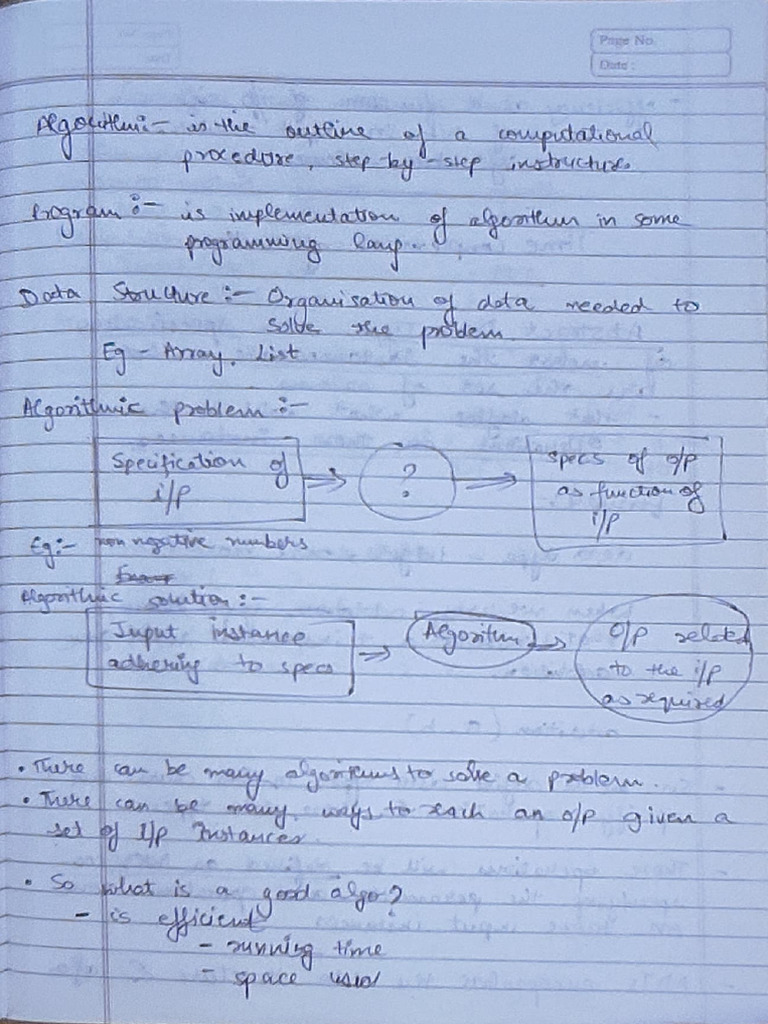 Page No.
Date :
Algorithm :- is the outline of a computational
procedure, step-by-step instructures
Program :- is implementation of algorithm in some
programming lang.
Data Structure :- Organisation of data needed to
solve the problem.
Eg - Array, List
Algorithmic problem :-
Specification of
i/p
?
specs of o/p
as function of
i/p
Eg:- non negative numbers
Algorithmic solution :-
Input instance
adhering to specs
Algorithm
O/P related
to the i/p
as required
• There can be many algorithms to solve a problem.
• There can be many ways to reach an o/p given a
set of I/p Instances
• So what is a good algo?
- is efficient
- running time
- space used